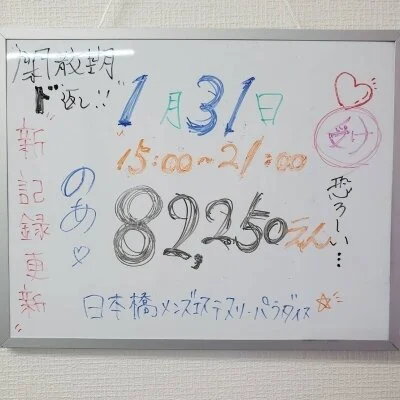 開放期
ド返し!!
1月31日
15:00~21:00
新記録更新
のあ♡
82,250えん
恐ろしい…
日本橋メンズエステスリーパラダイス☆